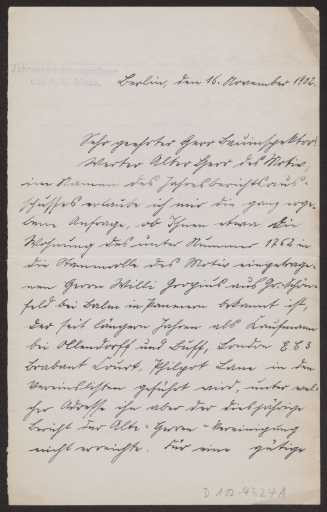 Berlin, den 16. November 1902.
Sehr geehrter Herr Bauinspektor!
Werter Alter Herr des Motiv,
im Namen des Jahresberichtsaus-
schusses erlaube ich mir die ganz erge-
bene Anfrage, ob Ihnen etwa die
Wohnung des unter Nummer 1262 in
die Stammrolle des Motiv eingetrage-
nen Herrn Willi Gropius aus Gr. Schön-
feld bei in Pommern bekannt ist,
der seit längeren Jahren als Kaufmann
bei Ollendorff und London E C 3
Brabant Court, Philpot Lane in den
Vereinslisten geführt wird, unter wel-
cher Adresse ihn aber der diesjährige
Bericht der Alte-Herren-Vereinigung
nicht erreichte. Für eine gütige